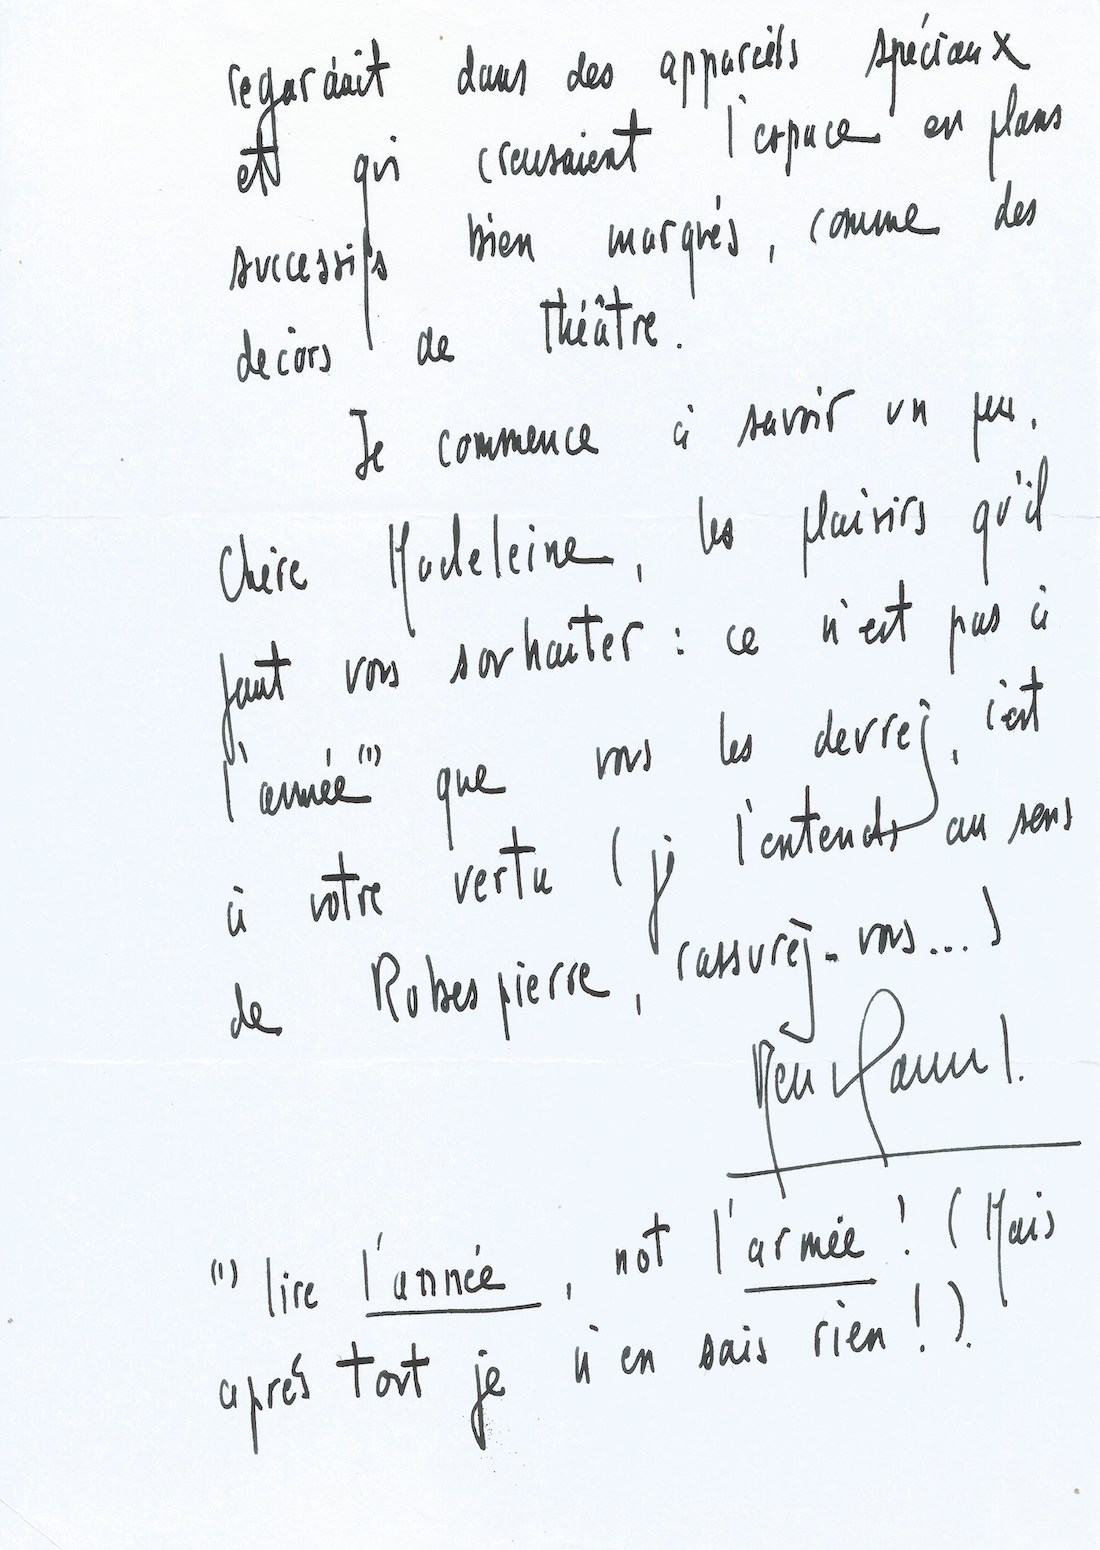 regardait dans des appareils spéciaux
et qui creusaient l'espace en plans
successifs bien marqués, comme des
décors de théâtre.
Je commence à savoir un peu,
Chère Madeleine, les plaisirs qu'il
faut vous souhaiter : ce n'est pas à
l'année (1) que vous les devrez, c'est
à votre vertu (je l'entends au sens
de Robespierre, rassurez-vous...)
(1) lire l'année, not l'armée ! (Mais
après tout je n'en sais rien !).